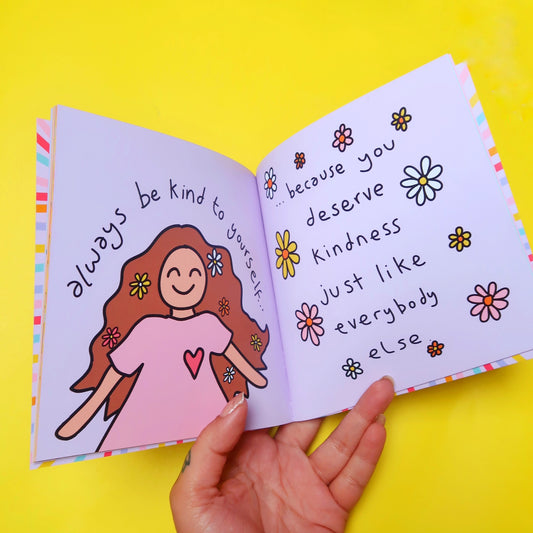 always be kind to yourself...
...because you
deserve
kindness
just like
everybody
else.